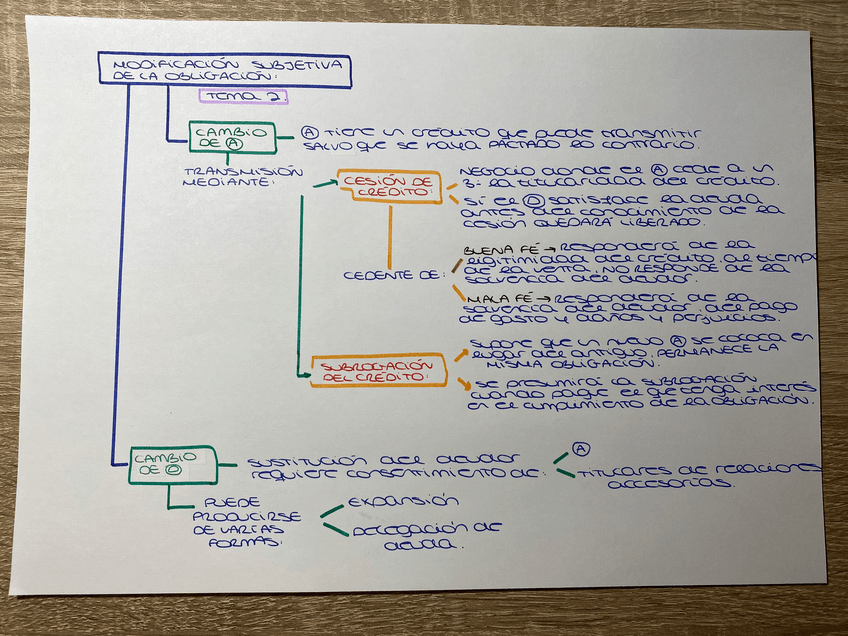 MODIFICACIÓN SUBJETIVA
DE LA OBLIGACIÓN:
TEMA 2.
CAMBIO
DE Ⓐ
Ⓐ TIENE UN CRÉDITO QUE PUEDE TRANSMITIR
SALVO QUE SE HAYA PACTADO LO CONTRARIO.
TRANSMISIÓN
MEDIANTE:
CESIÓN DE
CRÉDITO:
NEGOCIO DONDE EL Ⓐ CEDE A UN
3º LA TITULARIDAD DEL CRÉDITO.
SI EL Ⓓ SATISFACE LA DEUDA
ANTES DEL CONOCIMIENTO DE LA
CESIÓN QUEDARÁ LIBERADO.
CEDENTE DE:
BUENA FÉ → RESPONDERÁ DE LA
LEGITIMIDAD DEL CRÉDITO AL TIEMPO
DE LA VENTA. NO RESPONDE DE LA
SOLVENCIA DEL DEUDOR.
MALA FÉ → RESPONDERÁ DE LA
SOLVENCIA DEL DEUDOR, DEL PAGO
DE GASTO Y DAÑOS Y PERJUICIOS.
SUBROGACIÓN
DEL CRÉDITO:
SUPONE QUE UN NUEVO Ⓐ SE COLOCA EN
LUGAR DEL ANTIGUO. PERMANECE LA
MISMA OBLIGACIÓN.
SE PRESUMIRÁ LA SUBROGACIÓN
CUANDO PAGUE EL QUE TENGA INTERÉS
EN EL CUMPLIMIENTO DE LA OBLIGACIÓN.
CAMBIO
DE Ⓓ
SUSTITUCIÓN DEL DEUDOR
REQUIERE CONSENTIMIENTO DE:
Ⓐ
TITULARES DE RELACIONES
ACCESORIAS.
PUEDE
PRODUCIRSE
DE VARIAS
FORMAS:
EXPANSIÓN
DELEGACIÓN DE
DEUDA.